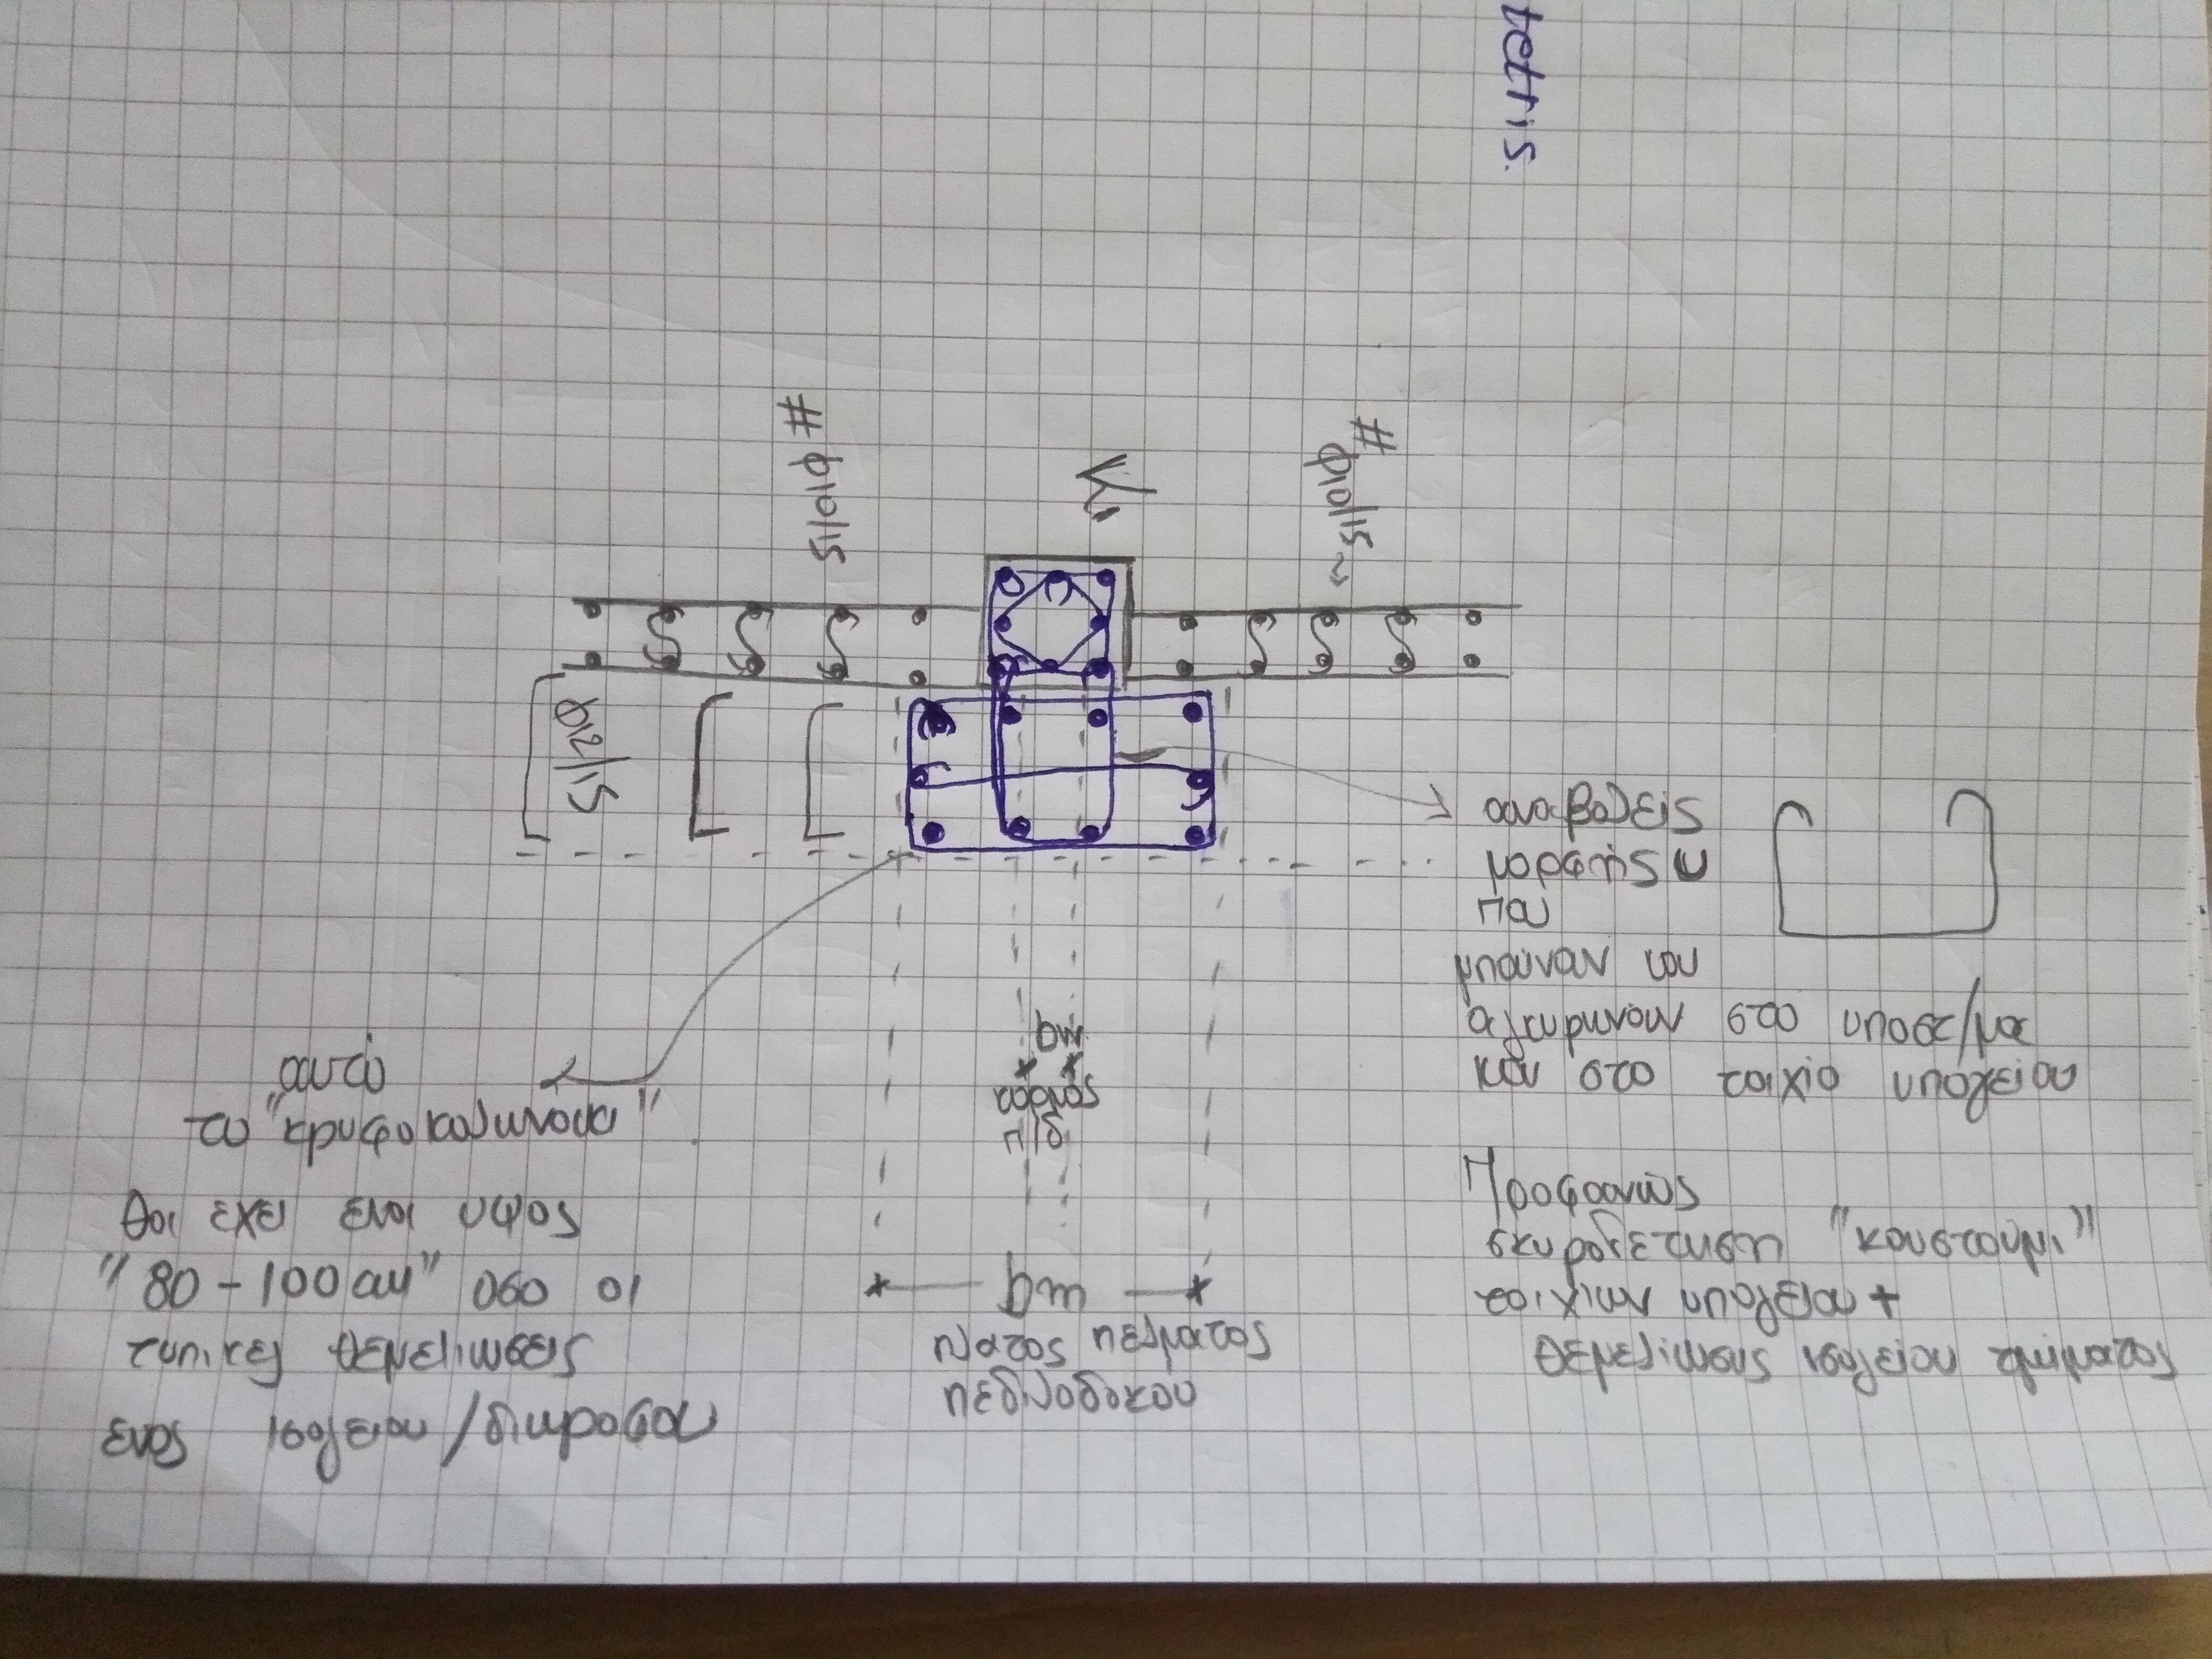 tetris.
#Φ10/15
K1
#Φ10/15
Φ12/15
αναβολείς
μορφής U
που
μπαίνουν και
αγκυρώνουν στο υποστ/μα
και στο τοιχίο υπογείου
bw
κορμός
π/δ
αυτό
το "κρυφοκολωνάκι"
θα έχει ένα ύψος
"80-100cm" όσο οι
τυπικές θεμελιώσεις
ενός ισογείου/διωρόφου
bm
πλάτος πέλματος
πεδιλοδοκού
Προφανώς
σκυροδέτηση "κουστούμι"
τοιχίων υπογείου +
θεμελίωσης ισογείου τμήματος